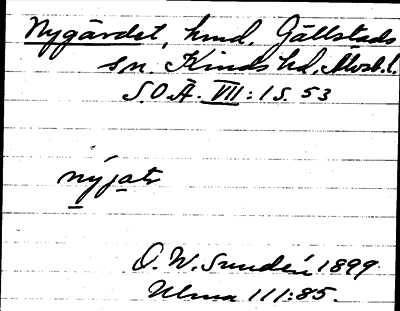 Nygärdet, hmd, Gällstads
sn. Kinds hd, Älvsb. l.
S.O.Ä. VII:1 S. 53
nýjatr
O. W. Sundén 1899
Ulma 111:85.